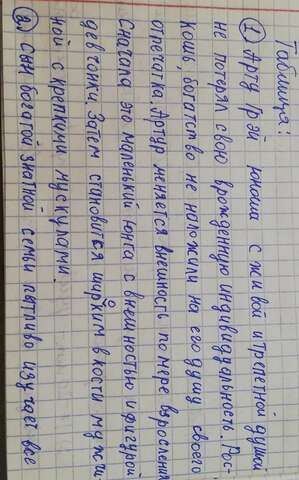 Таблица:
① Арту Грэй юноша с живой и трепетной душой
не потерял свою врожденную индивидуальность. Рос-
кошь, богатство не наложили на его душу своего
отпечатка. Артур меняется внешность по мере взросления
Сначала это маленький юнга с внешностью и фигурой
девчонки. Затем становится широким в кости мужчи-
ной с крепкими мускулами.
② Сын богатой знатной семьи пытливо изучает все